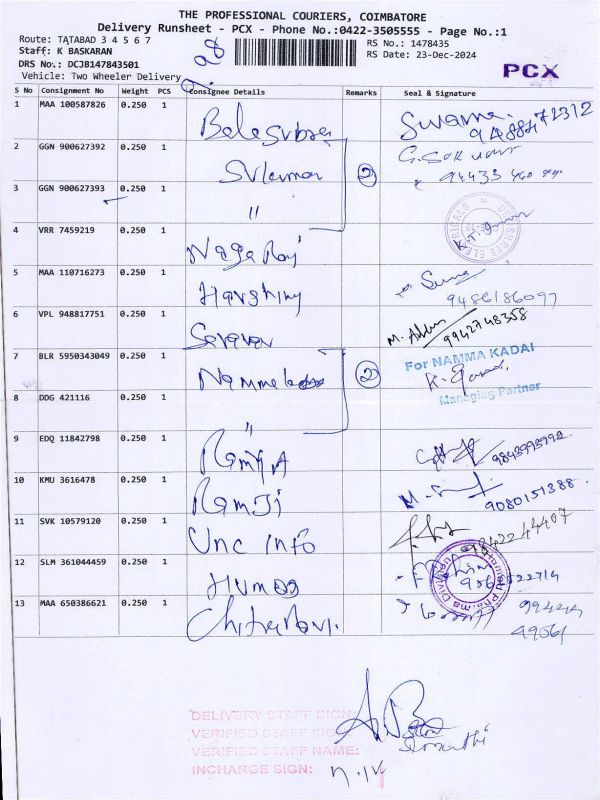 THE PROFESSIONAL COURIERS, COIMBATORE
Delivery Runsheet - PCX - Phone No.:0422-3505555 - Page No.:1
Route: TATABAD 3 4 5 6 7
RS No.: 1478435
Staff: K BASKARAN
RS Date: 23-Dec-2024
DRS No.: DCJB147843501
PCX
Vehicle: Two Wheeler Delivery
28
S No Consignment No Weight PCS Consignee Details Remarks Seal & Signature
1 MAA 100587826 0.250 1
2 GGN 900627392 0.250 1 2
3 GGN 900627393 0.250 1 "
4 VRR 7459219 0.250 1 Naga Raj
5 MAA 110716273 0.250 1 Harshiny
9486186097
6 VPL 948817751 0.250 1 Saravan
9942748358
7 BLR 5950343049 0.250 1 2 For NAMMA KADAI
Managing Partner
8 DDG 421116 0.250 1 "
9 EDQ 11842798 0.250 1 Ramya 9843993992
10 KMU 3616478 0.250 1 RamJi
9080151388
11 SVK 10579120 0.250 1 Unc info 9842244407
12 SLM 361044459 0.250 1
13 MAA 650386621 0.250 1 Chitra Ravi.
99444
49561
DELIVERY STAFF SIGN:
VERIFIED STAFF SIGN:
VERIFIED STAFF NAME:
INCHARGE SIGN: